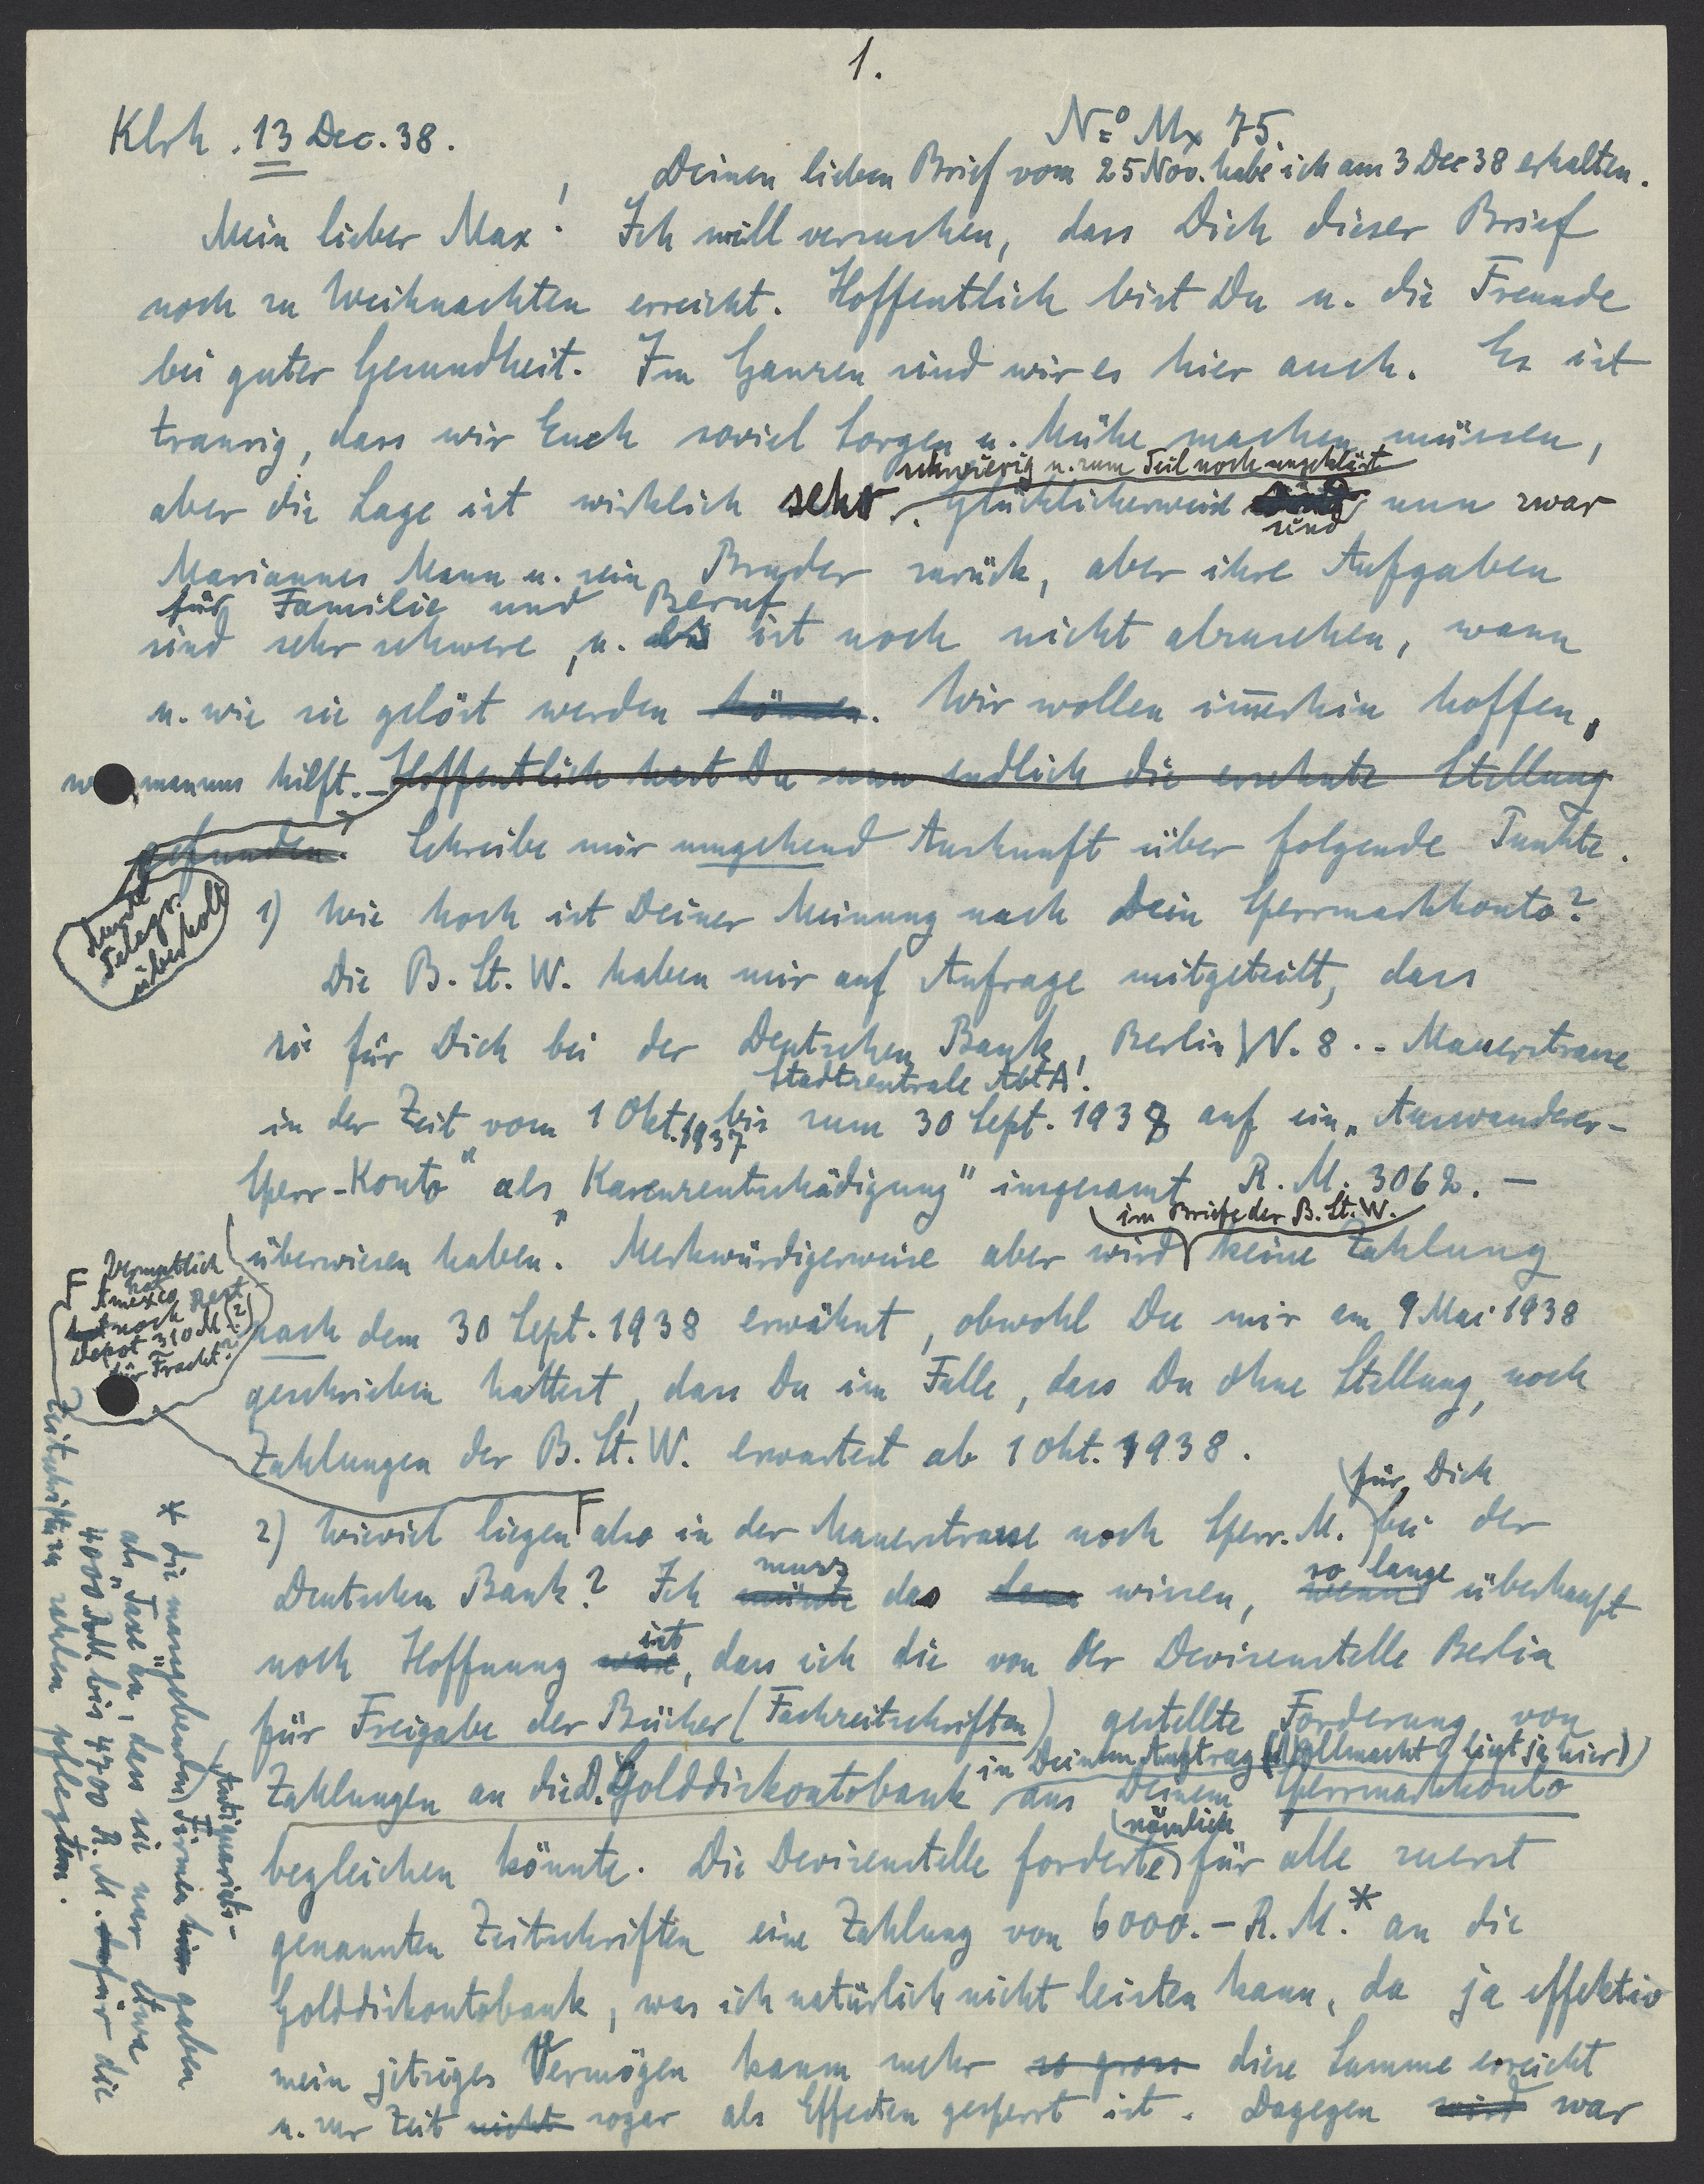 1.
Klrh. 13 Dec. 38.
No Mx 75.
Deinen lieben Brief vom 25 Nov. habe ich am 3 Dec 38 erhalten.
Mein lieber Max! Ich will versuchen, dass Dich dieser Brief
noch zu Weihnachten erreicht. Hoffentlich bist Du u. die Freunde
bei guter Gesundheit. Im Ganzen sind wir es hier auch. Es ist
traurig, dass wir Euch soviel Sorgen u. Mühe machen müssen,
schwierig u. zum Teil noch ungeklärt
aber die Lage ist wirklich sehr. Glücklicherweise nun zwar
sind
Mariannes Mann u. sein Bruder zurück, aber ihre Aufgaben
für Familie und Beruf
sind sehr schwere, u. ist noch nicht abzusehen, wann
u. wie sie gelöst werden können. Wir wollen im̄erhin hoffen,
man uns hilft. – Hoffentlich hast Du nun endlich die ersehnte Stellung
gefunden. Schreibe mir umgehend Auskunft über folgende Punkte.
durch
Telegr.
überholt
1) Wie hoch ist Deiner Meinung nach Dein Sperrmarkkonto?
Die B. St. W. haben mir auf Anfrage mitgeteilt, dass
sie für Dich bei der Deutschen Bank, Berlin W. 8. - Mauerstrasse
Stadtzentrale Abt A!
in der Zeit vom 1 Okt. 1937 bis zum 30 Sept. 1938 auf ein „Auswanderer-
Sperr-Konto" als „Karenzentschädigung" insgesamt R. M. 3062. –
im Briefe der B. St. W.
überwiesen haben. Merkwürdigerweise aber wird keine Zahlung
nach dem 30 Sept. 1938 erwähnt, obwohl Du mir am 9 Mai 1938
geschrieben hattest, dass Du im Falle, dass Du ohne Stellung, noch
Zahlungen der B. St. W. erwartest ab 1 Okt. 1938.
F Vermutlich
hat
Amexco Rest
noch
Depot 310 M (?)
für Fracht?
für Dich
2) Wieviel liegen F also in der Mauerstrasse noch Sperr. M. bei der
muss so lange
Deutschen Bank? Ich müsste das dann wissen, wenn überhaupt
ist
noch Hoffnung wäre, dass ich die von der Devisenstelle Berlin
für Freigabe der Bücher (Fachzeitschriften) gestellte Forderung von
in Deinem Auftrag (Vollmacht liegt ja hier)
Zahlungen an die D. Golddiskontobank aus Deinem Sperrmarkkonto
nämlich
begleichen könnte. Die Devisenstelle forderte für alle zuerst
genannten Zeitschriften eine Zahlung von 6000. – R. M.* an die
Golddiskontobank, was ich natürlich nicht leisten kann, da ja effektiv
mein jetziges Vermögen kaum mehr so gross diese Summe erreicht
u. zur Zeit nicht sogar als Effecten gesperrt ist. Dagegen wird war
Antiquariats-
* die massgebenden Firmen gaben
als „Taxe" an, dass sie nur etwa
4000 RM. bis 4700 R. M. dafür die
Zeitschriften zahlen pflegten.